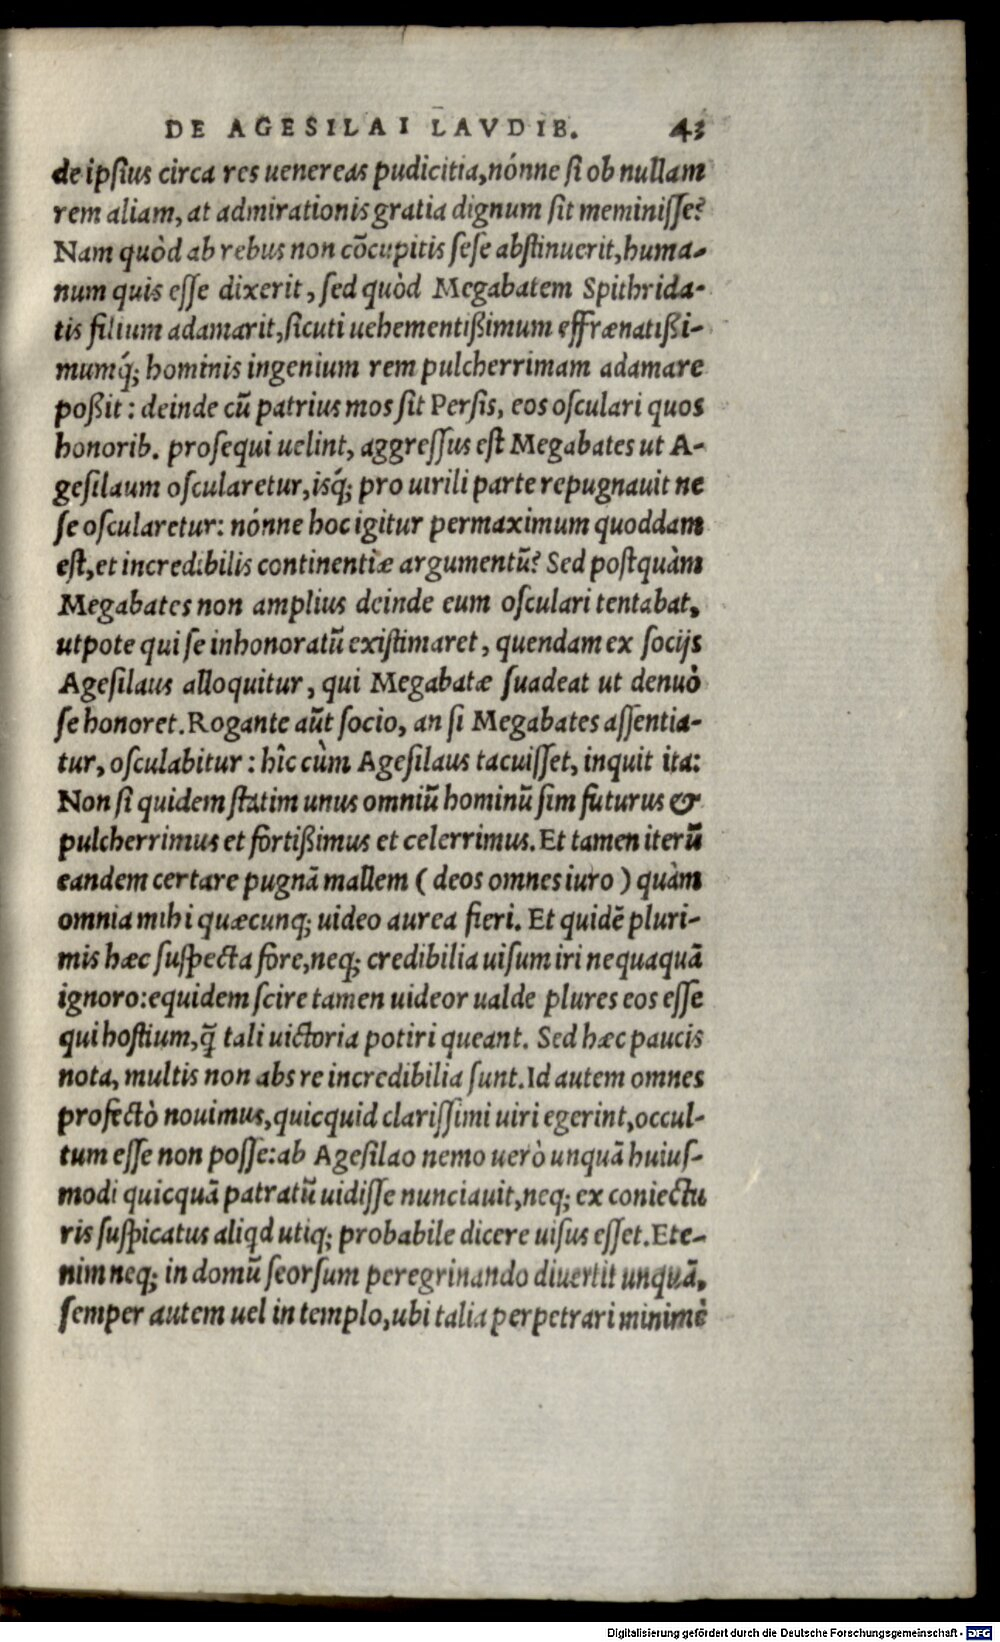 DE AGESILAI LAVDIB. 43
de ipſius circa res uenereas pudicitia,nónne ſi ob nullam
rem aliam, at admirationis gratia dignum ſit meminiſſe?
Nam quòd ab rebus non cōcupitis ſeſe abſtinuerit,huma-
num quis eſſe dixerit, ſed quòd Megabatem Spithrida-
tis filium adamarit,ſicuti uehementißimum effrænatißi-
mumq́; hominis ingenium rem pulcherrimam adamare
poßit: deinde cū patrius mos ſit Perſis, eos oſculari quos
honorib. proſequi uelint, aggreſſus eſt Megabates ut A-
geſilaum oſcularetur,isq́; pro uirili parte repugnauit ne
ſe oſcularetur: nónne hoc igitur permaximum quoddam
eſt,et incredibilis continentiæ argumentū? Sed poſtquàm
Megabates non amplius deinde eum oſculari tentabat,
utpote qui ſe inhonoratū exiſtimaret, quendam ex ſocijs
Ageſilaus alloquitur, qui Megabatæ ſuadeat ut denuò
ſe honoret. Rogante aūt ſocio, an ſi Megabates aſſentia-
tur, oſculabitur: hîc cùm Ageſilaus tacuiſſet, inquit ita:
Non ſi quidem ſtatim unus omniū hominū ſim futurus &
pulcherrimus et fortißimus et celerrimus. Et tamen iterū
eandem certare pugnā mallem (deos omnes iuro) quàm
omnia mihi quæcunq; uideo aurea fieri. Et quidē pluri-
mis hæc ſuſpecta fore,neq; credibilia uiſum iri nequaquā
ignoro:equidem ſcire tamen uideor ualde plures eos eſſe
qui hoſtium,q̄ tali uictoria potiri queant. Sed hæc paucis
nota, multis non abs re incredibilia ſunt. Id autem omnes
profectò nouimus,quicquid clariſſimi uiri egerint,occul-
tum eſſe non poſſe:ab Ageſilao nemo uerò unquā huiuſ-
modi quicquā patratū uidiſſe nunciauit,neq; ex coniectu
ris ſuſpicatus aliqd utiq; probabile dicere uiſus eſſet. Ete-
nim neq; in domū ſeorſum peregrinando diuertit unquā,
ſemper autem uel in templo,ubi talia perpetrari minimè
Digitalisierung gefördert durch die Deutsche Forschungsgemeinschaft - DFG